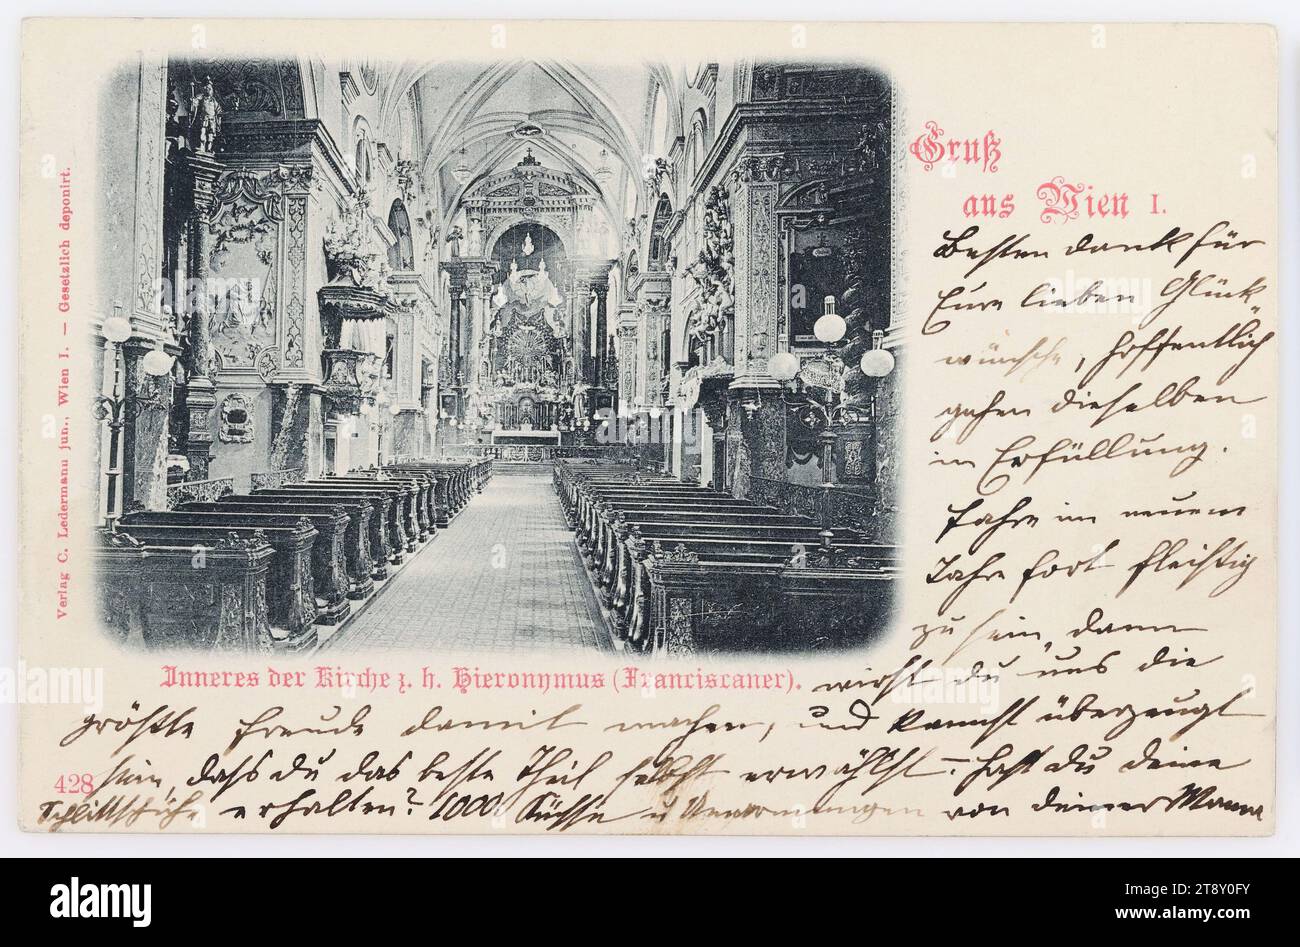 Gruß
aus Wien I.
Besten Dank für
Eure lieben Glück
wünsche, hoffentlich
gehen dieselben
in Erfüllung.
Fahre im neuen
Jahre fort fleißig
zu sein, dann
wirst du uns die
größte Freude damit machen, und kannst überzeugt
sein, dass du das beste Theil selbst erwählst. – Hast du deine
Schlittschuhe erhalten? 1000 Küsse u von deiner Mama
Inneres der Kirche z. h. Hieronymus (Franciscaner).
428
Verlag C. Ledermann jun., Wien I. — Gesetzlich deponirt.
alamy
alamy
Image ID: 2T8Y0FY
www.alamy.com